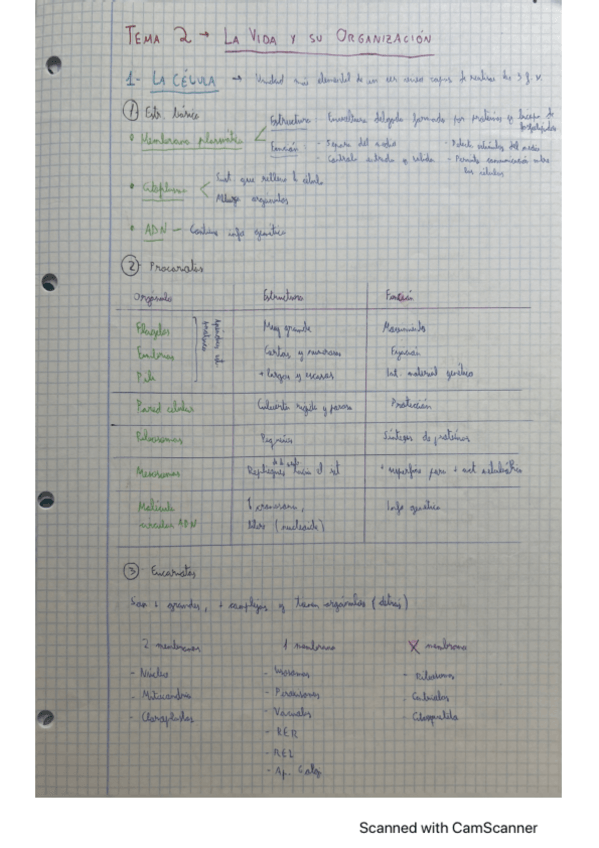 TEMA 2 → LA VIDA Y SU ORGANIZACIÓN
1- LA CÉLULA → Unidad más elemental de un ser vivo capaz de realizar las 3 f. v.
① Estr. básica
• Membrana plasmática
Estructura Envoltura delgada formada por proteínas y bicapa de fosfolípidos
Función - Separa del medio - Detecta estímulos del medio
- Controla entrada y salida - Permite comunicación entre las células
• Citoplasma
Sust. que rellena la célula
Alberga orgánulos
• ADN — Contiene info genética
② Procariotas
Orgánulo Estructura Función
Flagelos Muy grande Movimiento
Fimbrias Cortas y numerosas Fijación
Pili + largos y escasos Int. material genético
Apéndices ext.
Pared celular Cubierta rígida y porosa Protección
Ribosomas Pequeños Síntesis de proteínas
Mesosomas Repliegues hacia el int + superficie para + act metabólica
Molécula circular ADN
1 cromosoma,
libre (nucleoide)
Info genética
③ Eucariotas
Son + grandes, + complejas y tienen orgánulos (detrás)
2 membranas 1 membrana X membrana
- Núcleo - Lisosomas - Ribosomas
- Mitocondria - Peroxisomas - Centriolos
- Cloroplastos - Vacuolas - Citoesqueleto
- RER
- REL
- Ap. Golgi
Scanned with CamScanner